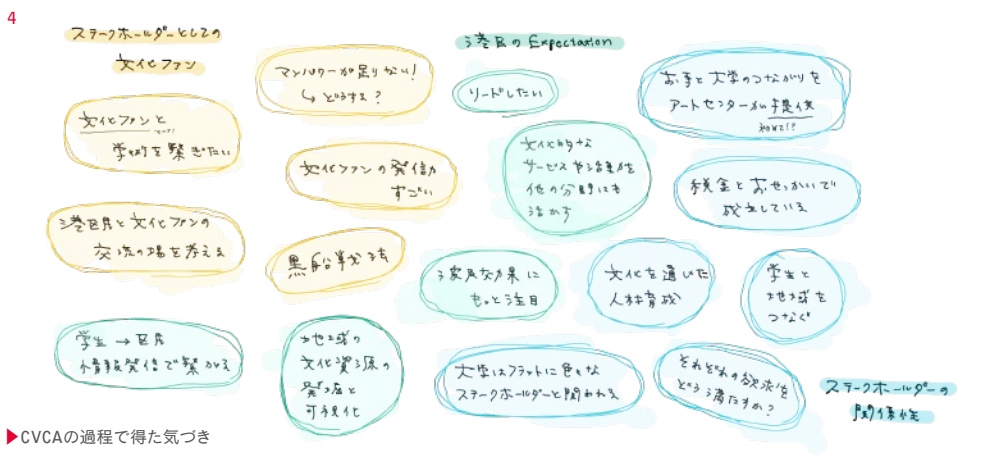 4
ステークホルダーとしての
文化ファン
文化ファンと
学校を繋ぎたい
港区民と文化ファンの
交流の場を考える
学生 → 区民
情報発信で繋がる
マンパワーが足りない!
↳ どうする?
文化ファンの発信力
すごい
黒船戦法
地域の
文化資源の
発掘と
可視化
港区の Expectation
リードしたい
文化的な
サービスや活動を
他の分野にも
活かす
波及効果に
もっと注目
大学はフラットに色々な
ステークホルダーと関われる
お寺と大学のつながりを
アートセンターが提供
初めて!?
税金とおせっかいで
成立している
文化を通じた
人材育成
学生と
地域を
つなぐ
それぞれの欲求を
どう満たすか?
ステークホルダーの
関係性
▶CVCAの過程で得た気づき